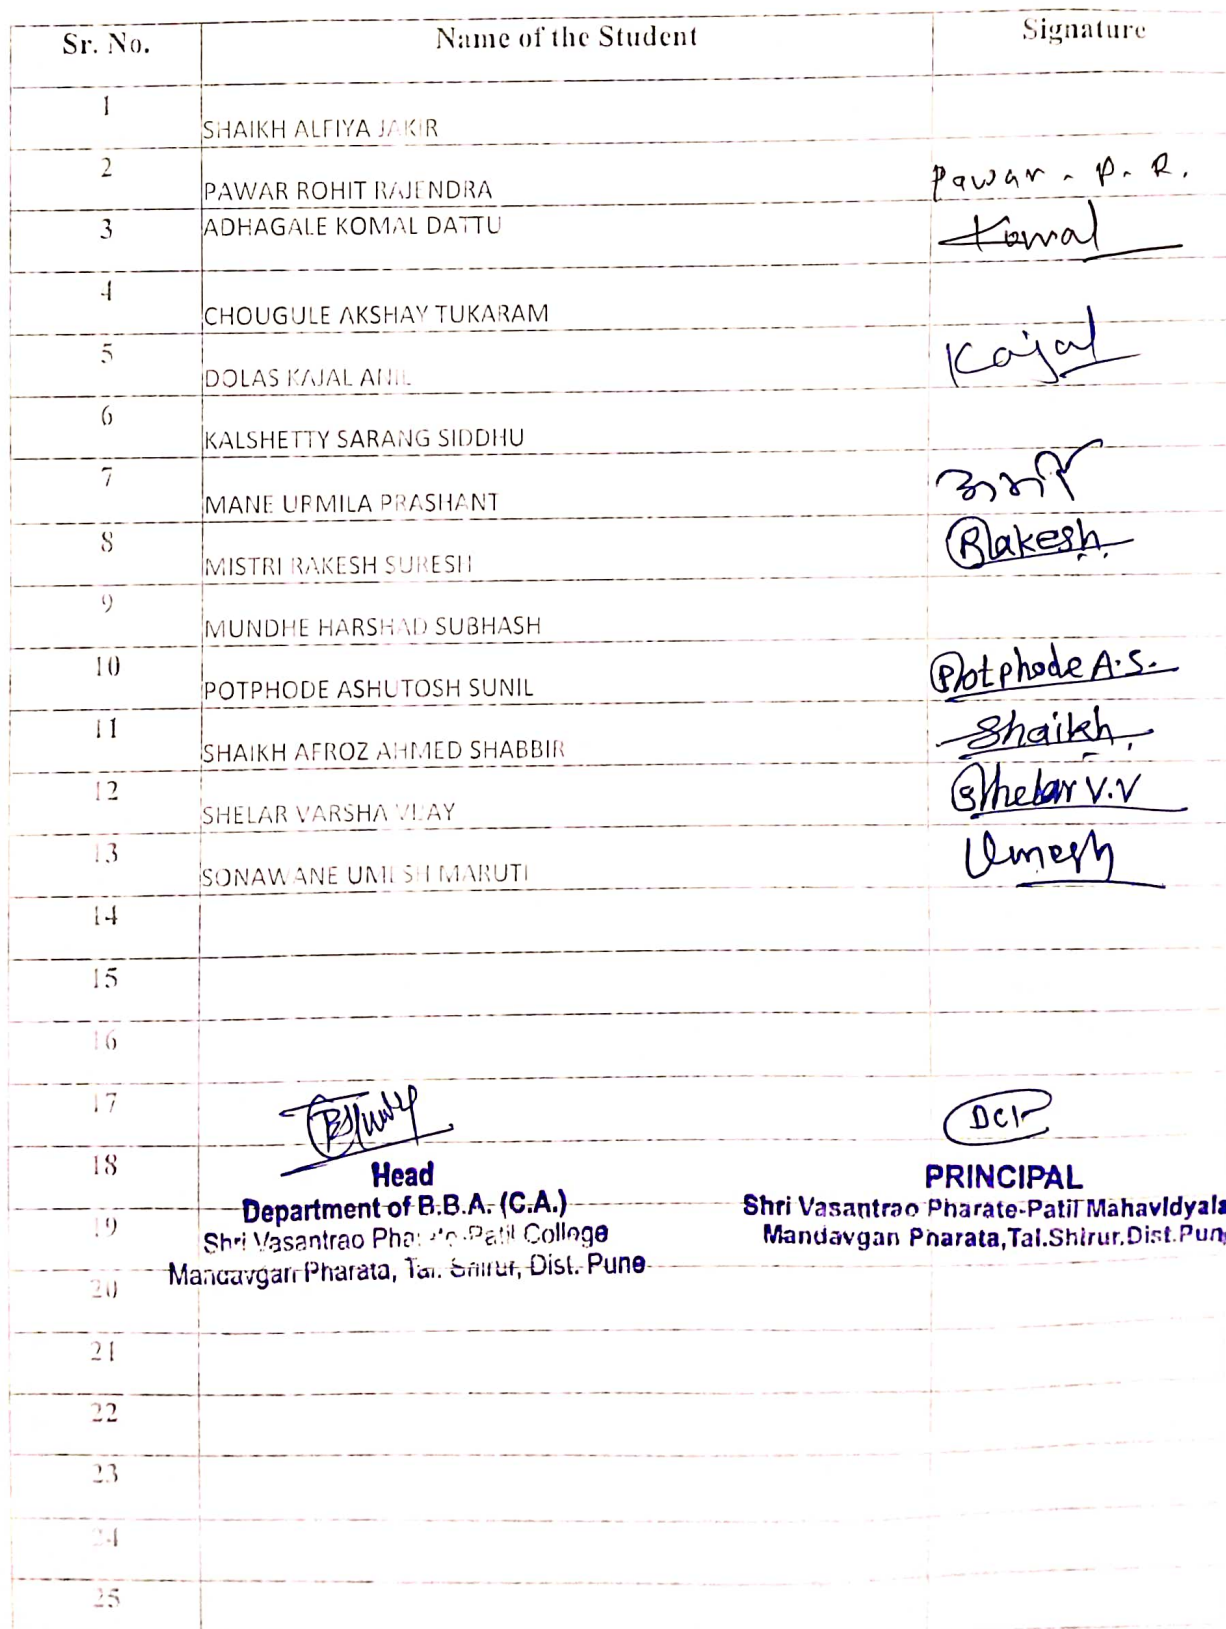 Sr. No. Name of the Student Signature
1 SHAIKH ALFIYA JAKIR
2 PAWAR ROHIT RAJENDRA Pawar. P. R.
3 ADHAGALE KOMAL DATTU Komal
4 CHOUGULE AKSHAY TUKARAM
5 DOLAS KAJAL ANIL Kajal
6 KALSHETTY SARANG SIDDHU
7 MANE URMILA PRASHANT
8 MISTRI RAKESH SURESH Rakesh
9 MUNDHE HARSHAD SUBHASH
10 POTPHODE ASHUTOSH SUNIL Potphode A.S.
11 SHAIKH AFROZ AHMED SHABBIR Shaikh
12 SHELAR VARSHA VIJAY Shelar V.V
13 SONAWANE UMESH MARUTI Umesh
14
15
16
17
18
19
20
21
22
23
24
25
Head
Department of B.B.A. (C.A.)
Shri Vasantrao Pharate-Patil College
Mandavgan Pharata, Tal. Shirur, Dist. Pune
PRINCIPAL
Shri Vasantrao Pharate-Patil Mahavidyala
Mandavgan Pharata,Tal.Shirur.Dist.Pun